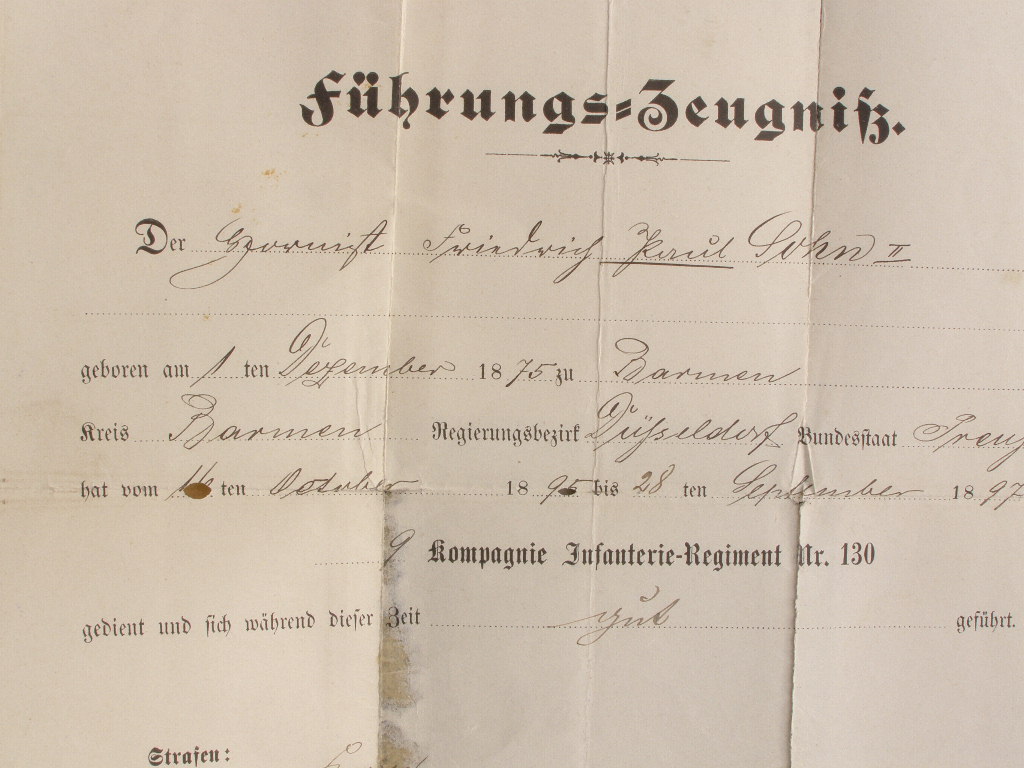 Führungs-Zeugniß.
Der Hornist Friedrich Paul Sohn II
geboren am 1 ten Dezember 1875 zu Barmen
Kreis Barmen Regierungsbezirk Düsseldorf Bundesstaat Preuß
hat vom ten October 1895 bis 28 ten September 1897
9 Kompagnie Infanterie-Regiment Nr. 130
gedient und sich während dieser Zeit gut geführt.
Strafen: